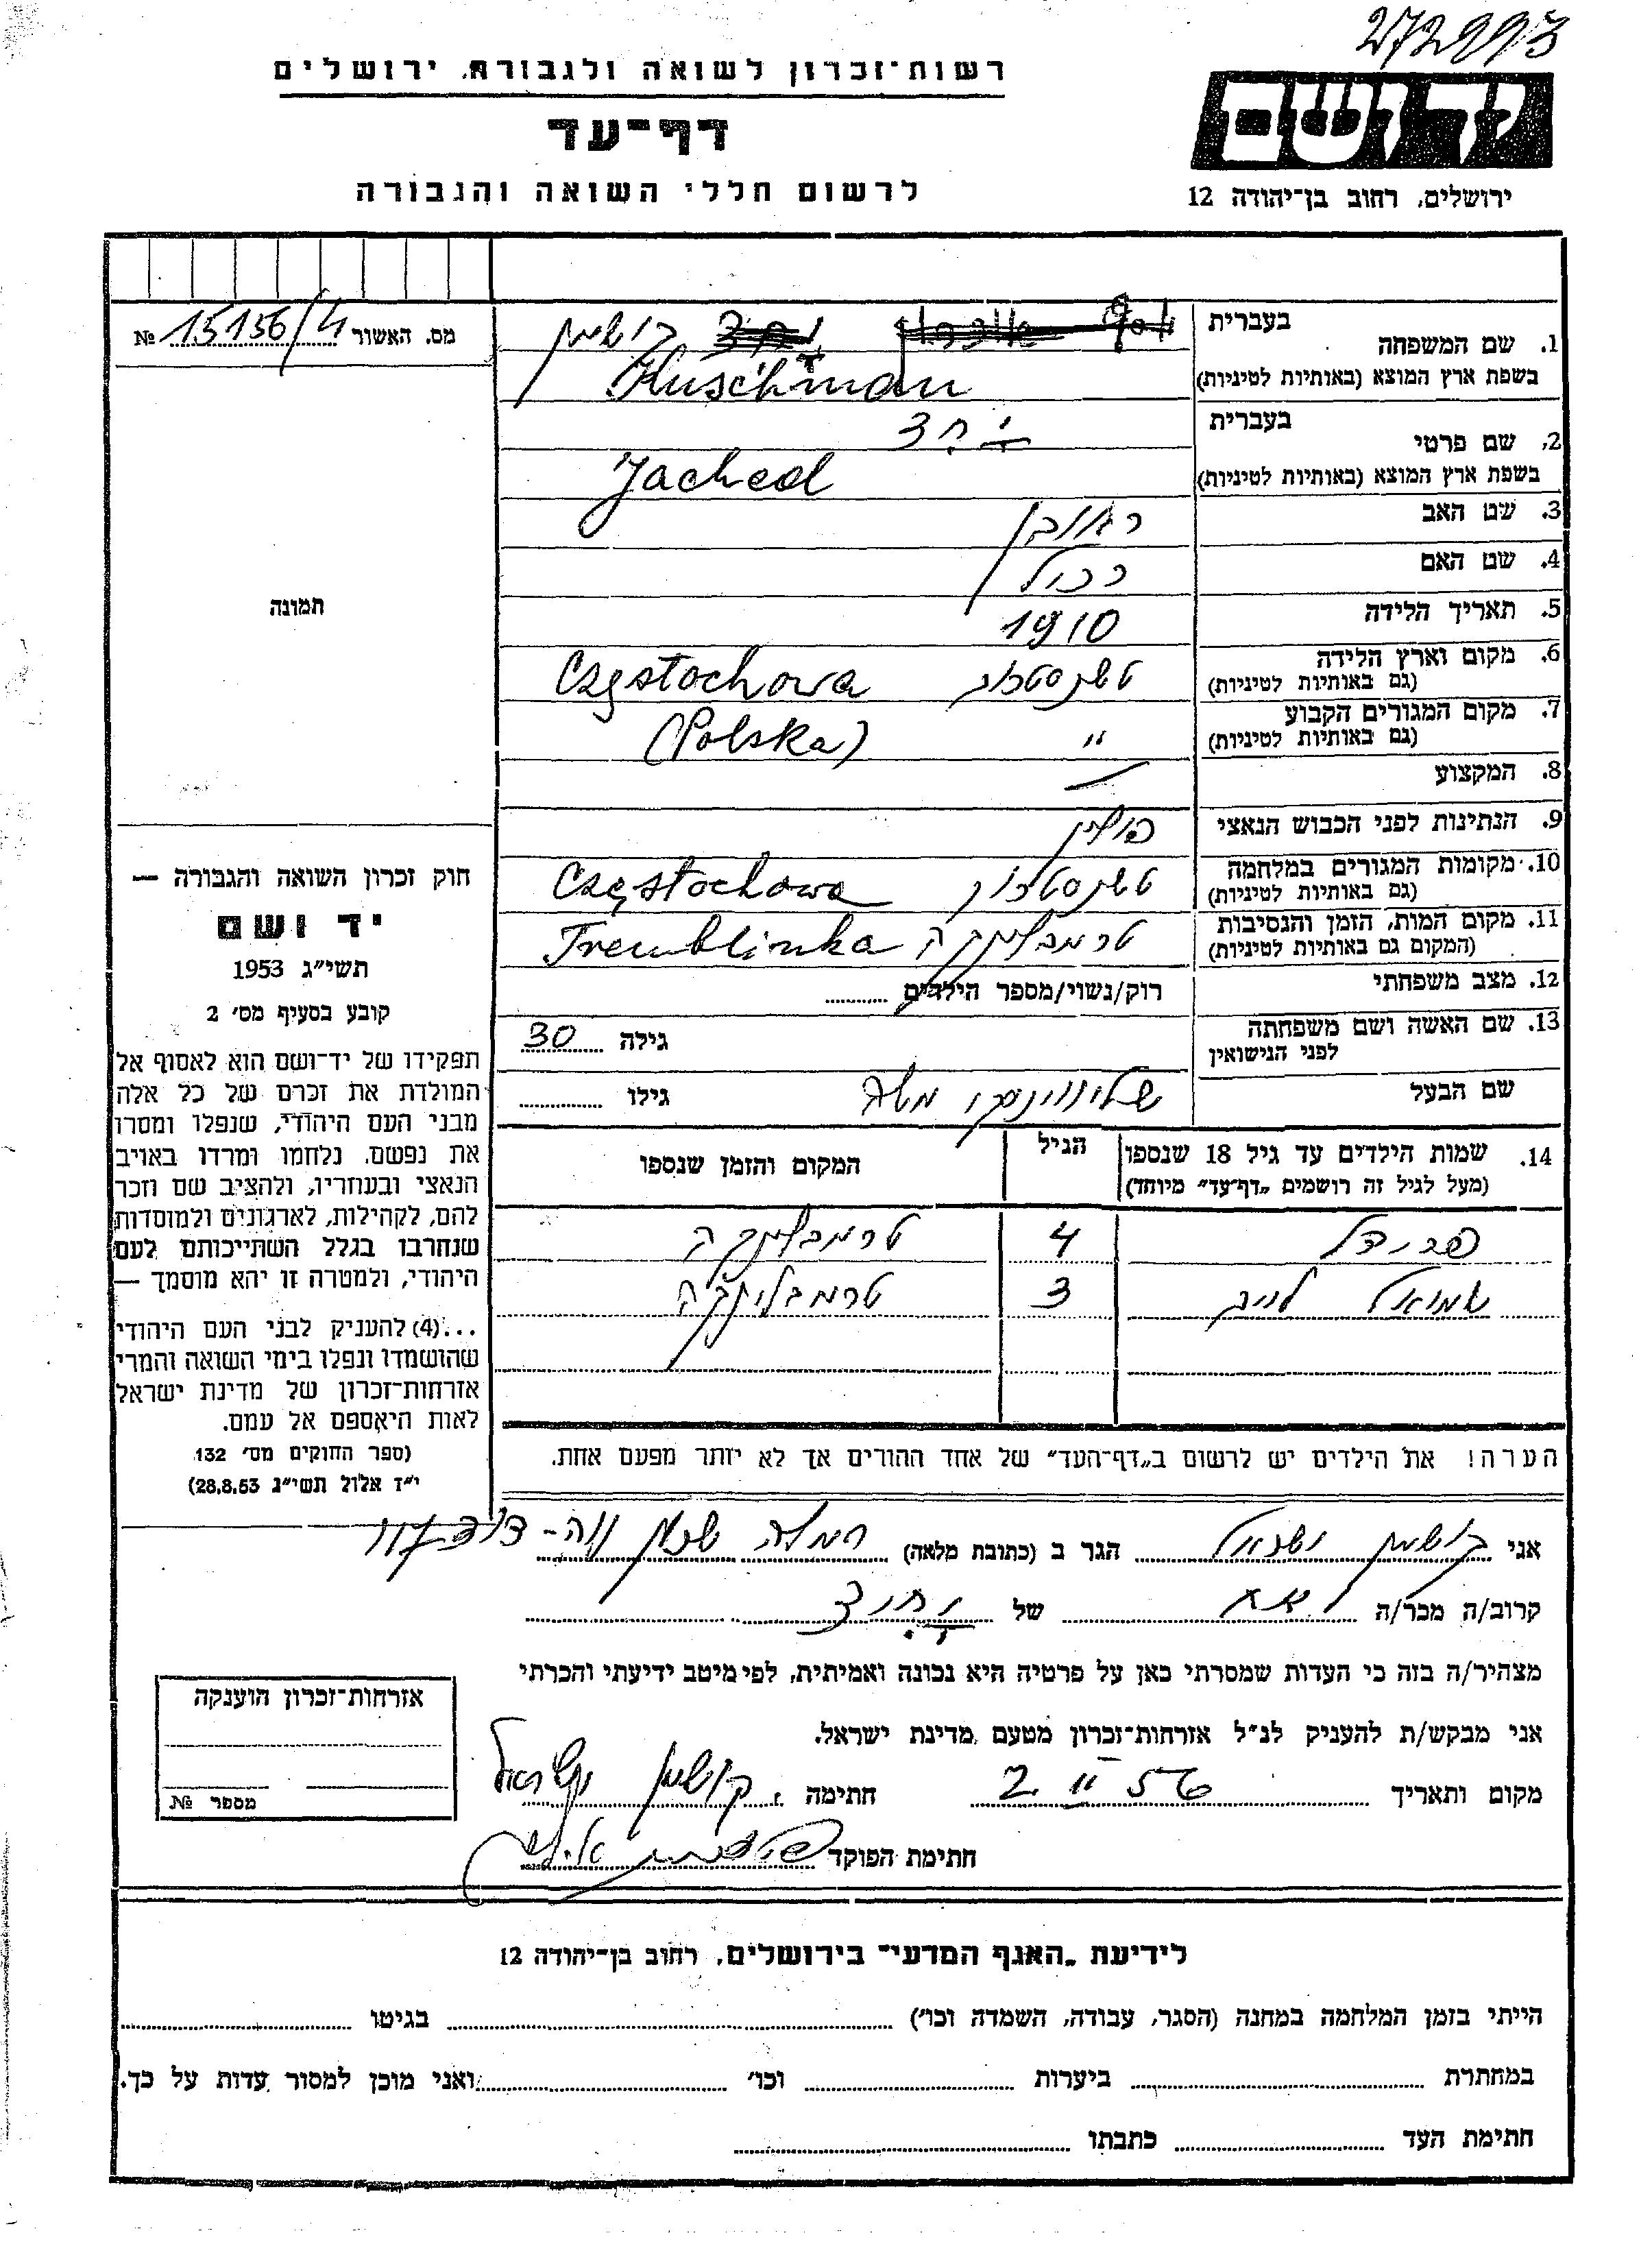 272993
רשות־זכרון לשואה ולגבורה, ירושלים
דף־עד
לרשום חללי השואה והגבורה
יד ושם
ירושלים, רחוב בן־יהודה 12
מס. האשור 15136/4 №
תמונה
1. שם המשפחה בעברית קושמן
בשפת ארץ המוצא (באותיות לטיניות) Kuschman
2. שם פרטי בעברית יחד
בשפת ארץ המוצא (באותיות לטיניות) Jached
3. שם האב ראובן
4. שם האם
5. תאריך הלידה 1910
6. מקום וארץ הלידה Częstochowa
(גם באותיות לטיניות)
7. מקום המגורים הקבוע " (Polska)
(גם באותיות לטיניות)
8. המקצוע —
9. הנתינות לפני הכבוש הנאצי פולין
10. מקומות המגורים במלחמה Częstochowa
(גם באותיות לטיניות)
11. מקום המות, הזמן והנסיבות טרמבלינקה Tremblinka
(המקום גם באותיות לטיניות)
12. מצב משפחתי רוק/נשוי/מספר הילדים
13. שם האשה ושם משפחתה גילה 30
לפני הנישואין
שם הבעל משה גילו
14. שמות הילדים עד גיל 18 שנספו הגיל המקום והזמן שנספו
(מעל לגיל זה רושמים „דף־עד" מיוחד)
4 טרמבלינקה
שמואל לייב 3 טרמבלינקה
הערה! את הילדים יש לרשום ב„דף־העד" של אחד ההורים אך לא יותר מפעם אחת.
חוק זכרון השואה והגבורה —
יד ושם
תשי"ג 1953
קובע בסעיף מס' 2
תפקידו של יד־ושם הוא לאסוף אל
המולדת את זכרם של כל אלה
מבני העם היהודי, שנפלו ומסרו
את נפשם, נלחמו ומרדו באויב
הנאצי ובעוזריו, ולהציב שם וזכר
להם, לקהילות, לארגונים ולמוסדות
שנחרבו בגלל השתייכותם לעם
היהודי, ולמטרה זו יהא מוסמך —
...(4) להעניק לבני העם היהודי
שהושמדו ונפלו בימי השואה והמרי
אזרחות־זכרון של מדינת ישראל
לאות היאספם אל עמם.
(ספר החוקים מס' 132
י"ז אלול תשי"ג 28.8.53)
אני קושמן ישראל הגר ב (כתובת מלאה) רמלה שכון נוה-דוד
קרוב/ה מכר/ה אח של
מצהיר/ה בזה כי העדות שמסרתי כאן על פרטיה היא נכונה ואמיתית, לפי מיטב ידיעתי והכרתי
אני מבקש/ת להעניק לנ"ל אזרחות־זכרון מטעם מדינת ישראל.
מקום ותאריך 2 II 56 חתימה קושמן ישראל
חתימת הפוקד
אזרחות־זכרון הוענקה
מספר №
לידיעת „האגף המדעי" בירושלים, רחוב בן־יהודה 12
הייתי בזמן המלחמה במחנה (הסגר, עבודה, השמדה וכו') בגיטו
במחתרת ביערות וכו' ואני מוכן למסור עדות על כך.
חתימת העד כתבתו